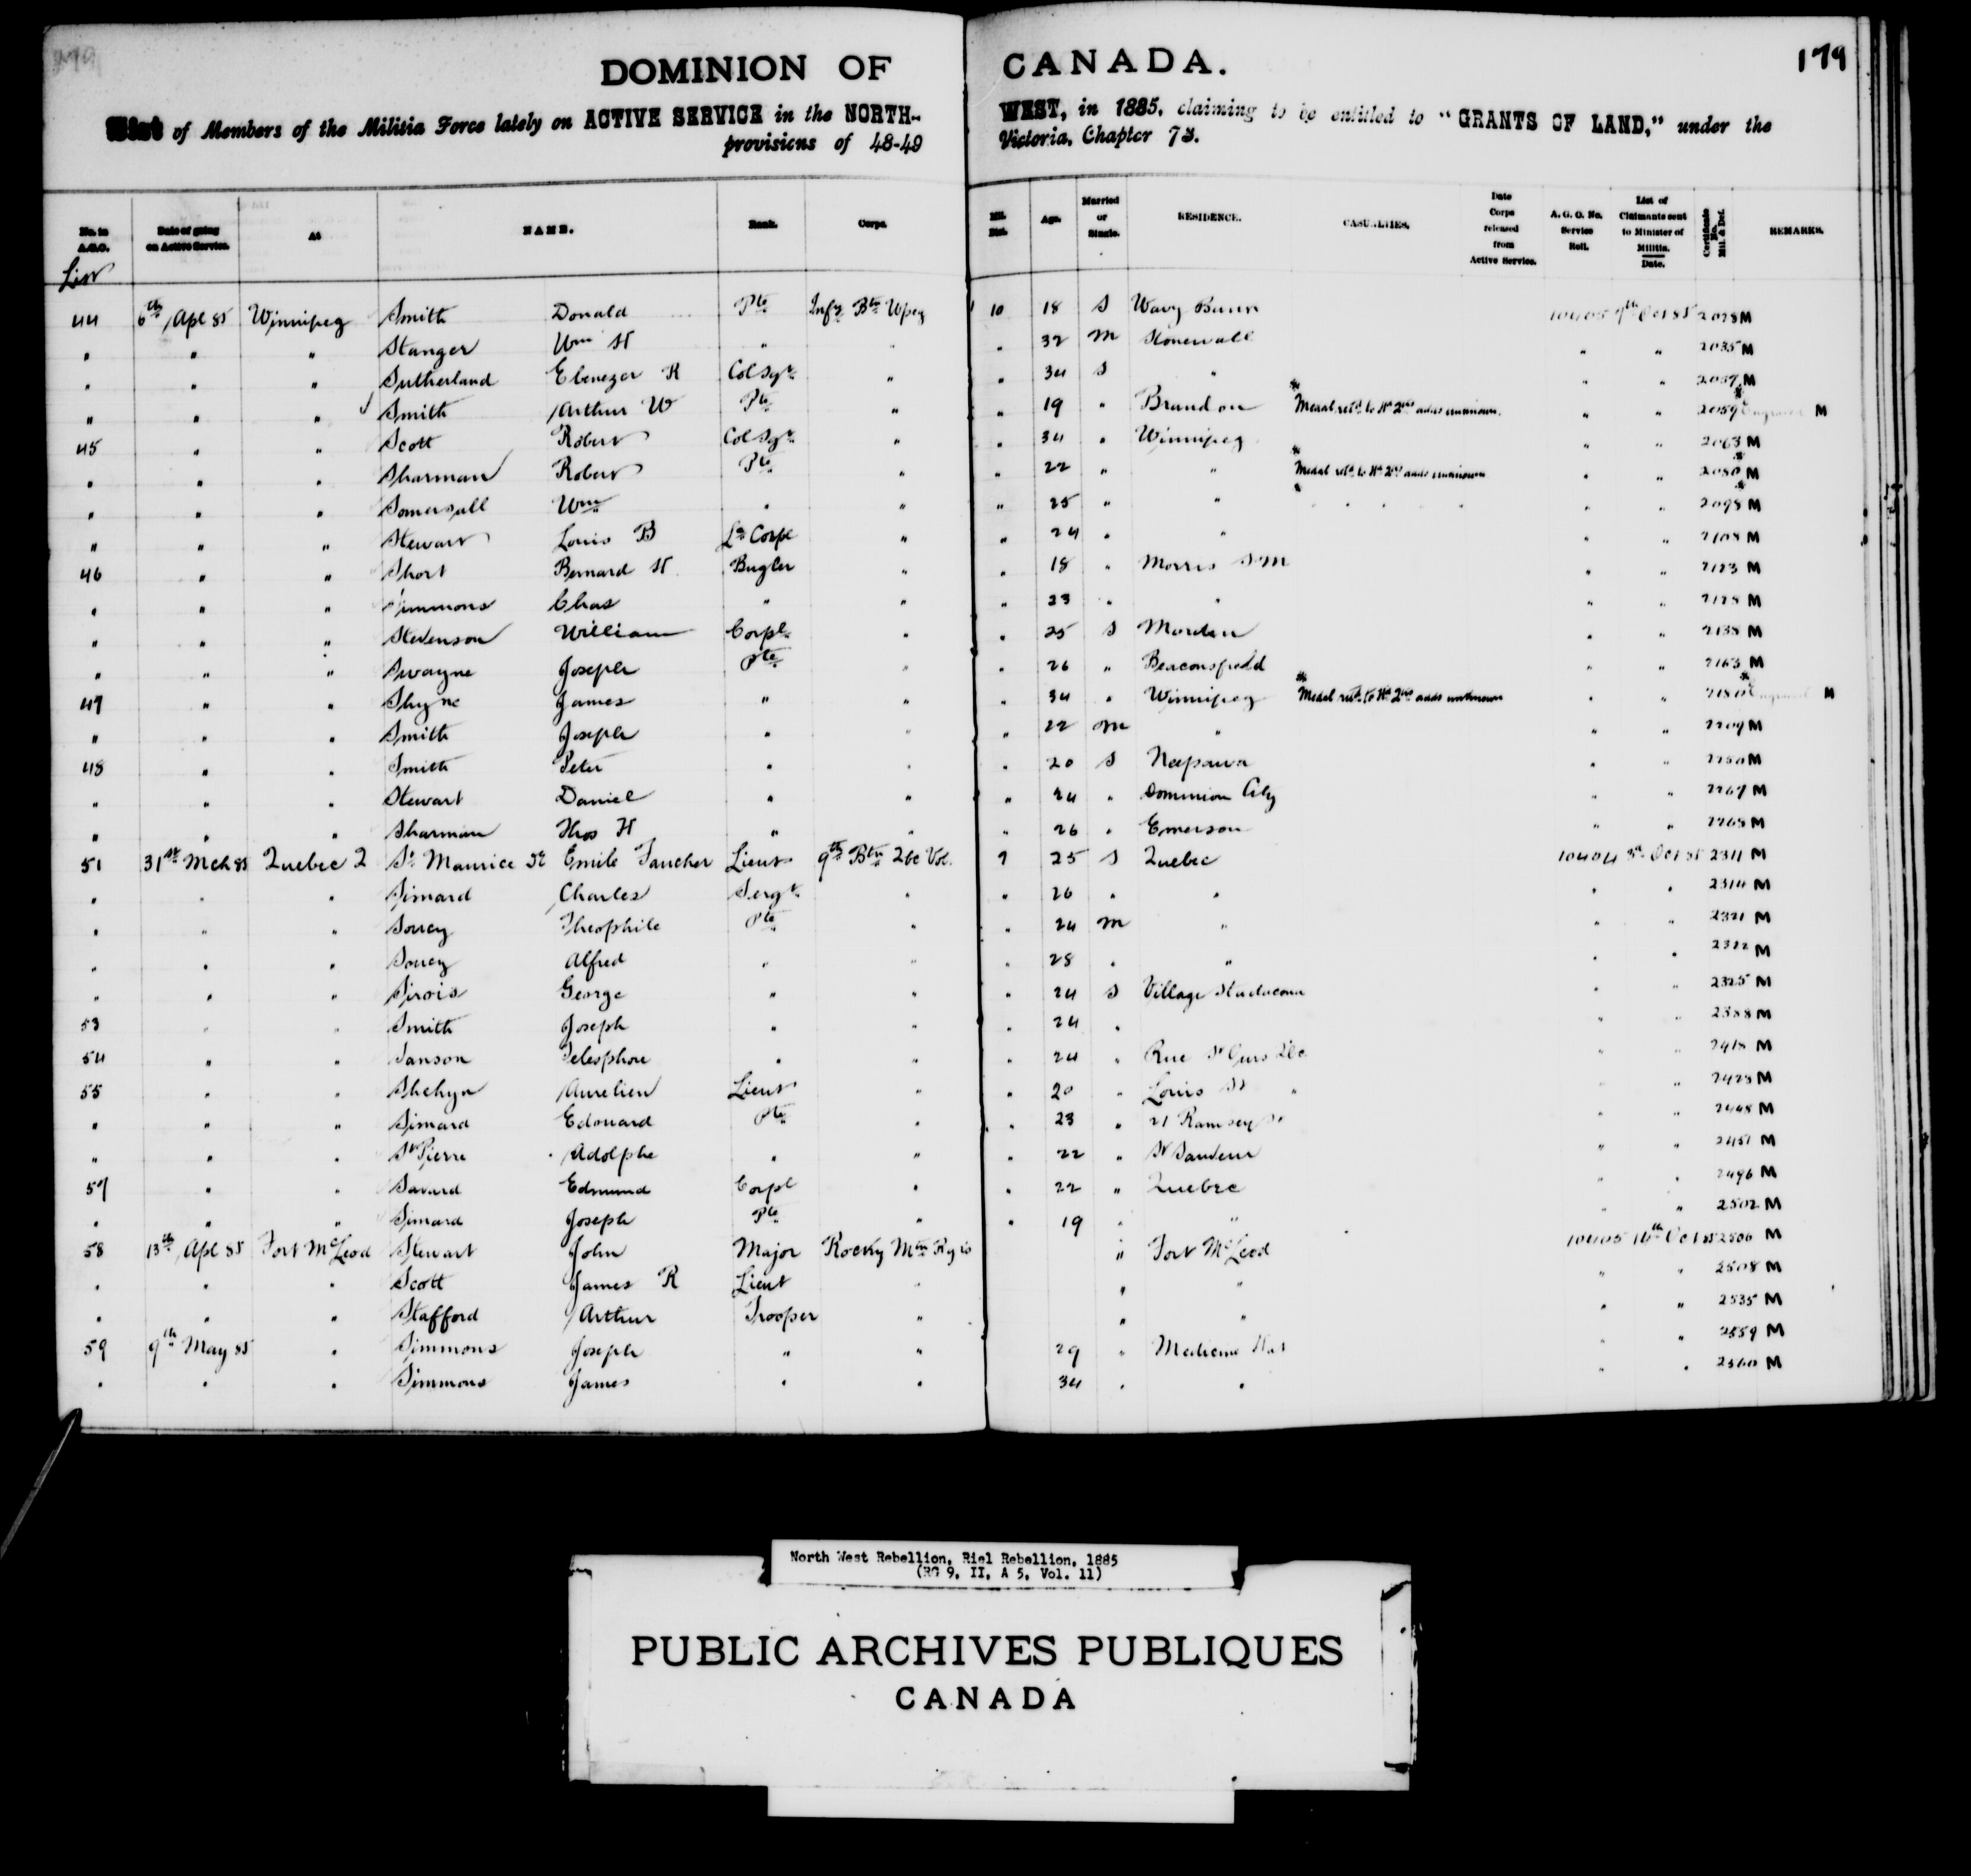 179
DOMINION OF CANADA.
List of Members of the Militia Force lately on ACTIVE SERVICE in the NORTH-WEST, in 1885, claiming to be entitled to "GRANTS OF LAND," under the
provisions of 48-49 Victoria, Chapter 73.
No. in A.G.O. List | Date of going on Active Service. | At | NAME. | Rank. | Corps. | Mil. Dist. | Age. | Married or Single. | RESIDENCE. | CASUALTIES. | Date Corps released from Active Service. | A. G. O. No. Service Roll. | List of Claimants sent to Minister of Militia. Date. | Certificate No. Mil. & Def. | REMARKS.
44 6th Apl 85 Winnipeg Smith Donald Pte Infy Btn Wpeg 10 18 S Oct 85 2028 M
" " " Stanger Wm H " " " 32 M Stonewall " " 2035 M
" " " Sutherland Ebenezer R Col Sgt " " 34 S " " " M
" " " Smith Arthur W Pte " " 19 " Brandon Medal retd to Hd 2rs adds unknown " " 2059 M
45 " " Scott Robert Col Sgt " " 34 " Winnipeg " " 2063 M
" " " Sharman Robert Pte " " 22 " " Medal retd to Hd 2rs adds unknown " " 2080 M
" " " Somersall Wm " " " 25 " " " " 2098 M
" " " Stewart Louis B Le Corpl " " 24 " " " " 2108 M
46 " " Short Bernard H Bugler " " 18 " Morris " " 2123 M
" " " Simmons Chas " " " 23 " " " " 2128 M
" " " Stevenson William Corpl " " 25 S Morden " " 2138 M
" " " Swayne Joseph Pte " " 26 " Beaconsfield " " 2163 M
47 " " Shyne James " " " 34 " Winnipeg Medal retd to Hd 2rs adds unknown " " M
" " " Smith Joseph " " " 22 M " " " 2209 M
48 " " Smith Peter " " " 20 S Neepawa " " M
" " " Stewart Daniel " " " 24 " Dominion City " " 2267 M
" " " Sharman Thos H " " " 26 " Emerson " " 2268 M
51 31st Mch 85 Quebec 2 St Maurice de Emile Faucher Lieut 9th Btn 2bc Vol. 7 25 S Quebec 10404 Oct 85 2311 M
" " " Simard Charles Sergt " " 26 " " " " 2314 M
" " " Soucy Theophile Pte " " 24 M " " " 2321 M
" " " Soucy Alfred " " " 28 " " " " 2322 M
" " " Sirois George " " " 24 S Village Stadacona " " 2325 M
53 " " Smith Joseph " " " 24 " " " 2388 M
54 " " Sanson Telesphore " " " 24 " Rue " " 2418 M
55 " " Shehyn Aurelien Lieut " " 20 " Louis St " " " 2428 M
" " " Simard Edouard Pte " " 23 " 21 Ramsey St " " 2448 M
" " " St Pierre Adolphe " " " 22 " St Sauveur " " 2451 M
57 " " Savard Edmund Corpl " " 22 " Quebec " " 2496 M
" " " Simard Joseph Pte " " 19 " " " " 2502 M
58 13th Apl 85 Fort McLeod Stewart John Major Rocky Mtn Rgrs " Fort McLeod 10405 16th Oct 85 2506 M
" " " Scott James R Lieut " " " " " 2508 M
" " " Stafford Arthur Trooper " " " " " 2535 M
59 9th May 85 " Simmons Joseph " " 29 " Medicine Hat " " 2559 M
" " " Simmons James " " 34 " " " " 2560 M
North West Rebellion, Riel Rebellion, 1885
(RG 9, II, A 5, Vol. 11)
PUBLIC ARCHIVES PUBLIQUES
CANADA